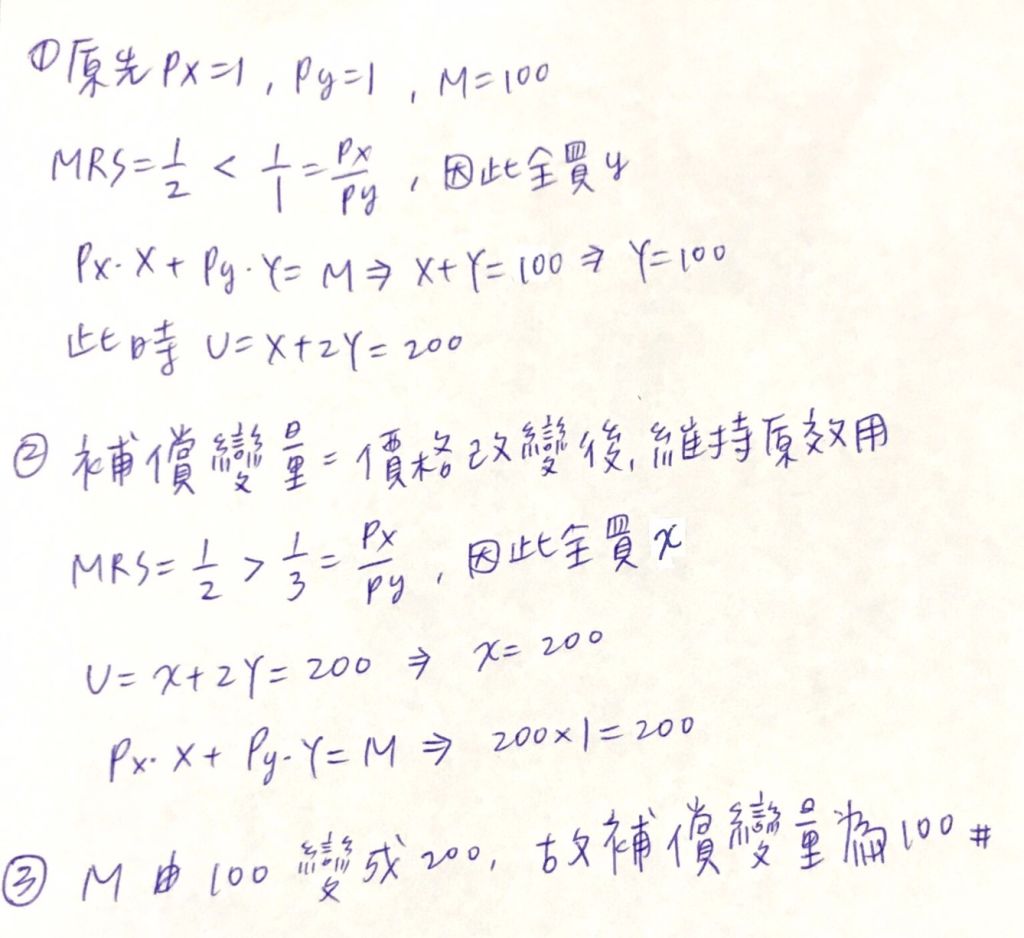 ①原先Px=1, Py=1, M=100
MRS=1/2 < 1/1 = Px/Py, 因此全買y
Px·X + Py·Y = M ⇒ X+Y=100 ⇒ Y=100
此時 U=X+2Y=200
② 補償變量=價格改變後,維持原效用
MRS=1/2 > 1/3 = Px/Py, 因此全買x
U=x+2Y=200 ⇒ x=200
Px·X + Py·Y = M ⇒ 200×1=200
③ M由100變成200, 故補償變量為100 #